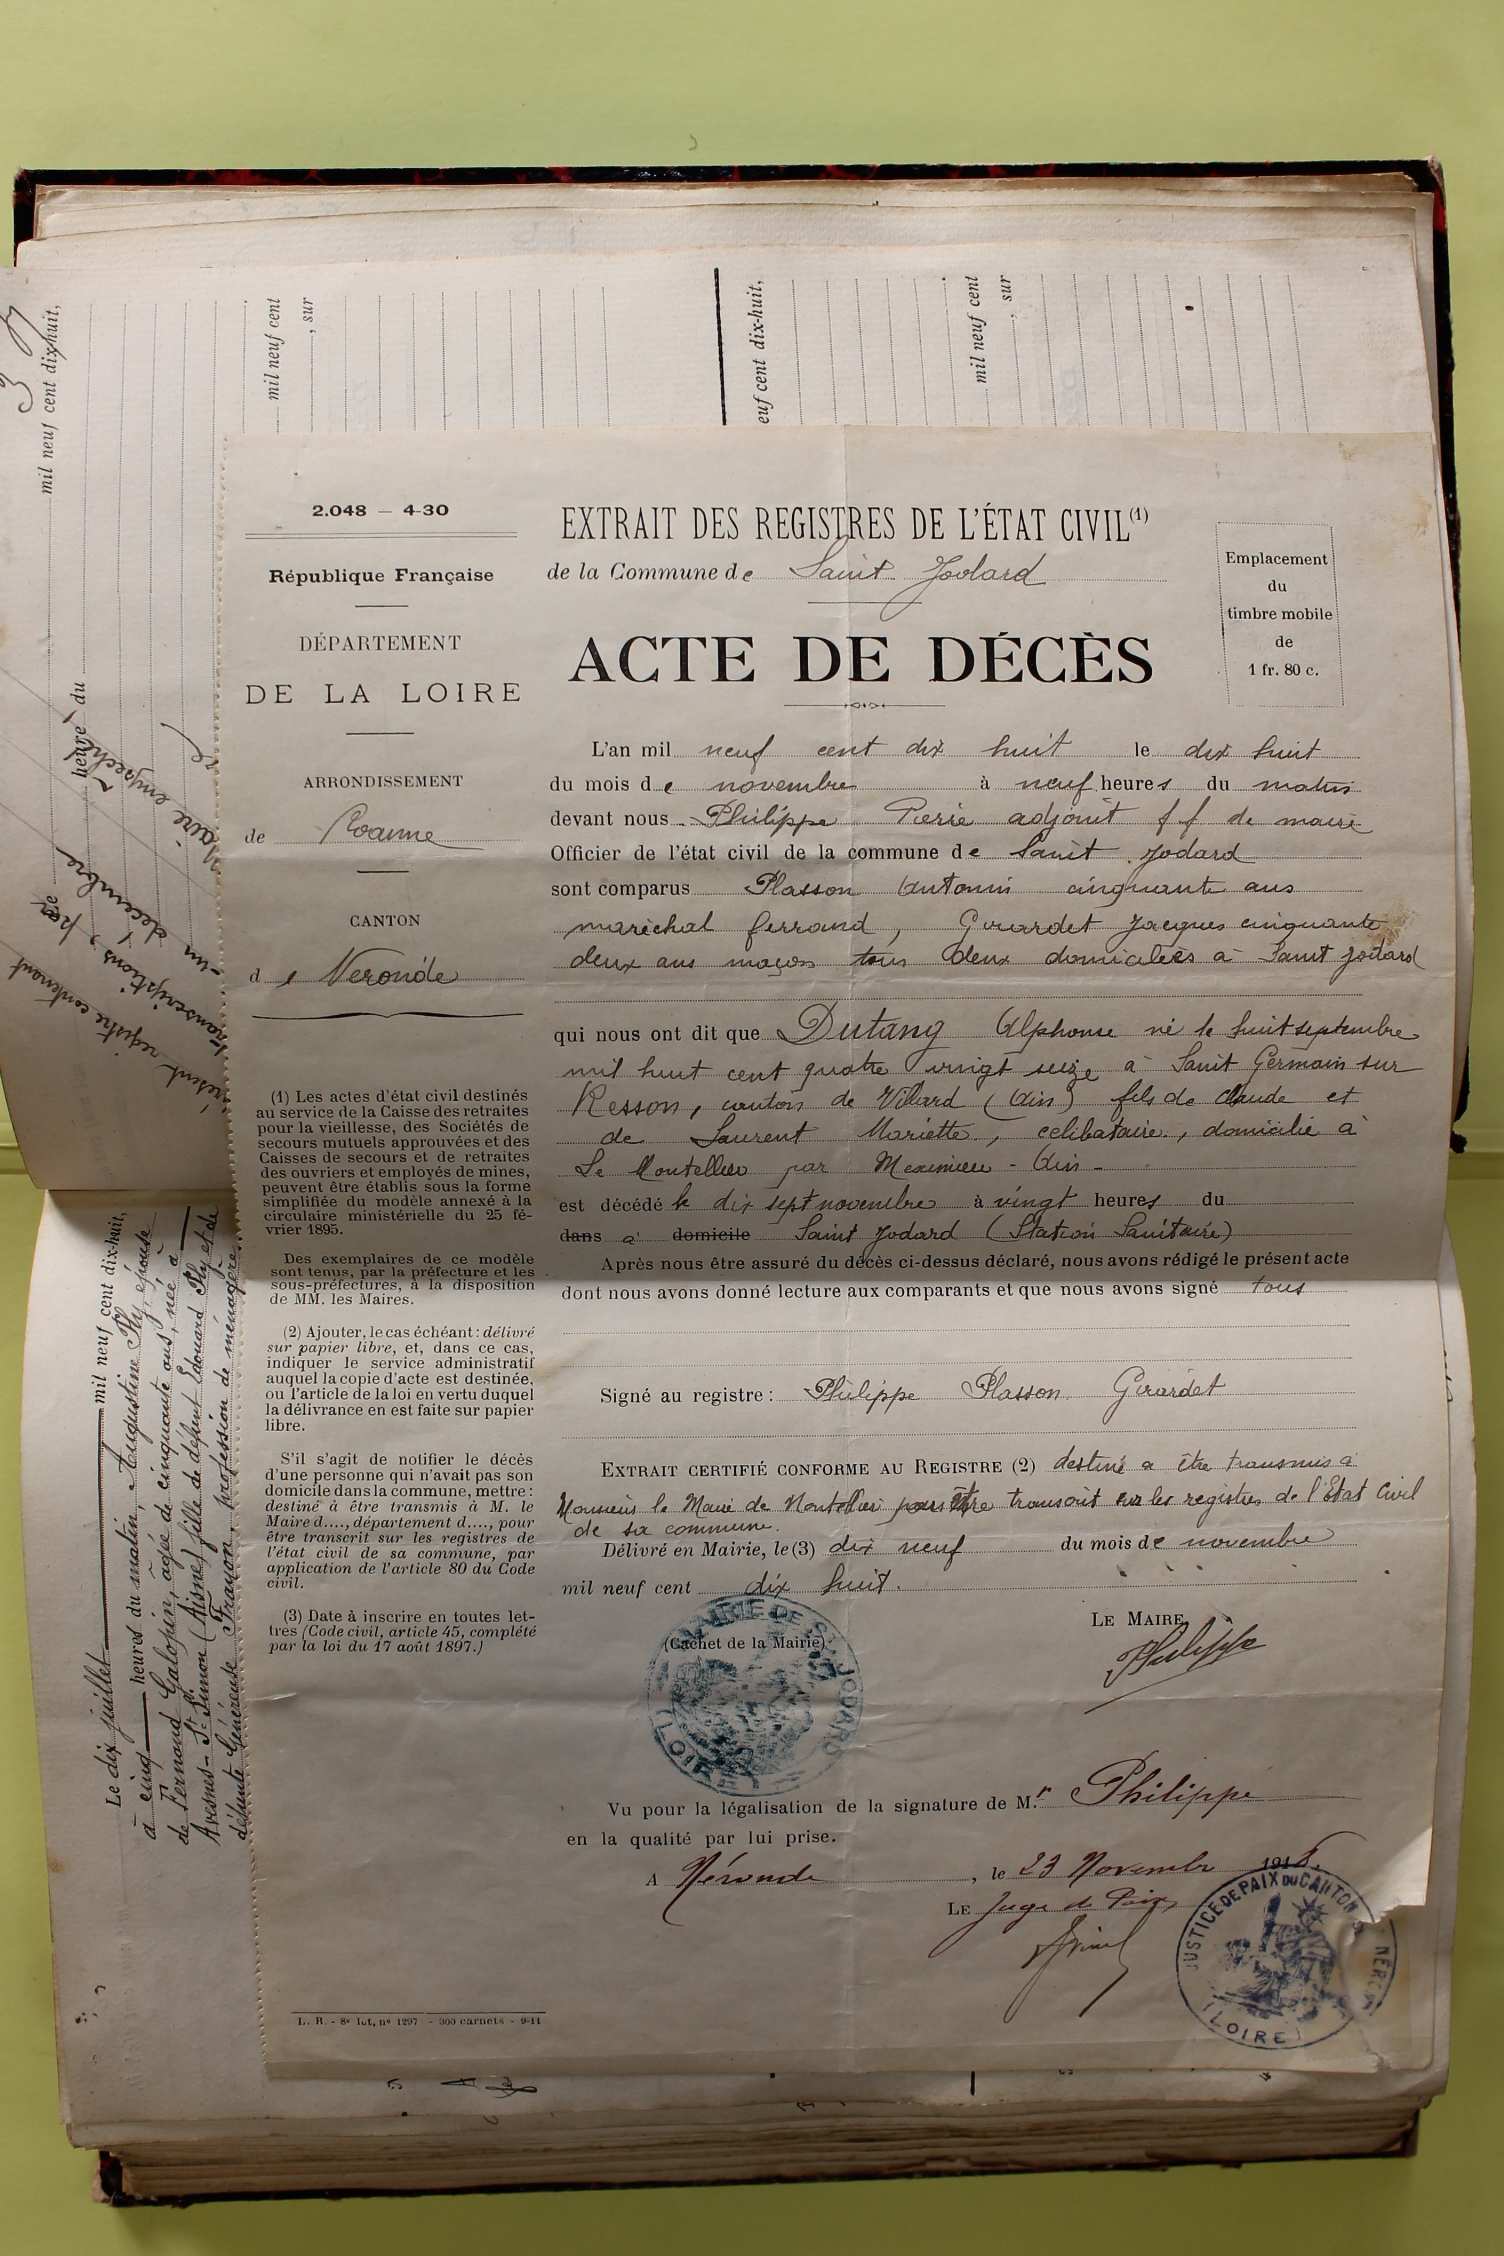 2.048 — 4-30
République Française
DÉPARTEMENT
DE LA LOIRE
ARRONDISSEMENT
de Roanne
CANTON
de Neronde
(1) Les actes d'état civil destinés
au service de la Caisse des retraites
pour la vieillesse, des Sociétés de
secours mutuels approuvées et des
Caisses de secours et de retraites
des ouvriers et employés de mines,
peuvent être établis sous la forme
simplifiée du modèle annexé à la
circulaire ministérielle du 25 fé-
vrier 1895.
Des exemplaires de ce modèle
sont tenus, par la préfecture et les
sous-préfectures, à la disposition
de MM. les Maires.
(2) Ajouter, le cas échéant : délivré
sur papier libre, et, dans ce cas,
indiquer le service administratif
auquel la copie d'acte est destinée,
ou l'article de la loi en vertu duquel
la délivrance en est faite sur papier
libre.
S'il s'agit de notifier le décès
d'une personne qui n'avait pas son
domicile dans la commune, mettre :
destiné à être transmis à M. le
Maire d...., département d...., pour
être transcrit sur les registres de
l'état civil de sa commune, par
application de l'article 80 du Code
civil.
(3) Date à inscrire en toutes let-
tres (Code civil, article 45, complété
par la loi du 17 août 1897.)
L. R. - 8e lot, no 1297 - 300 carnets - 9-11
EXTRAIT DES REGISTRES DE L'ÉTAT CIVIL(1)
de la Commune de Saint Jodard
ACTE DE DÉCÈS
Emplacement
du
timbre mobile
de
1 fr. 80 c.
L'an mil neuf cent dix huit le dix huit
du mois de novembre à neuf heures du matin
devant nous Philippe Pierre adjoint f f de maire
Officier de l'état civil de la commune de Saint Jodard
sont comparus Plasson Antonin cinquante ans
maréchal ferrand, Girardet Jacques cinquante
deux ans maçon tous deux domiciliés à Saint Jodard
qui nous ont dit que Dutang Alphonse né le huit septembre
mil huit cent quatre vingt seize à Saint Germain sur
Resson, canton de Villard (Ain) fils de Claude et
de Laurent Mariette, célibataire, domicilié à
Le Montellier par Meximieu - Ain -
est décédé le dix sept novembre à vingt heures du
dans à domicile Saint Jodard (Station Sanitaire)
Après nous être assuré du décès ci-dessus déclaré, nous avons rédigé le présent acte
dont nous avons donné lecture aux comparants et que nous avons signé tous
Signé au registre : Philippe Plasson Girardet
EXTRAIT CERTIFIÉ CONFORME AU REGISTRE (2) destiné a être transmis à
Monsieur le Maire de Montellier pour être transcrit sur les registres de l'Etat Civil
de sa commune.
Délivré en Mairie, le (3) dix neuf du mois de novembre
mil neuf cent dix huit.
LE MAIRE,
Philippe
(Cachet de la Mairie)
MAIRIE DE ST JODARD
(LOIRE)
Vu pour la légalisation de la signature de M.r Philippe
en la qualité par lui prise.
A Néronde, le 23 Novembre 1918.
LE Juge de Paix,
JUSTICE DE PAIX DU CANTON
(LOIRE)
mil neuf cent dix-huit,
heure du
mil neuf cent
, sur
euf cent dix-huit,
mil neuf cent
, sur
Maire empêché
-un décembre
transcriptions, par
présent registre contenant
Le dix juillet mil neuf cent dix-huit,
à cinq heures du matin, Augustine Ply, épouse
de Fernand Galopin, âgée de cinquante ans, née à
Avesnes-St Simon (Aisne) fille de défunt Edouard Ply et de
défunte Généreuse Frayon, profession de ménagère